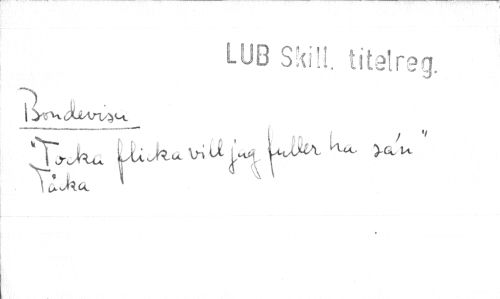 LUB Skill. titelreg.
Bondevisu
"Tocka flicka vill jag fuller ha så'n"
Täcka